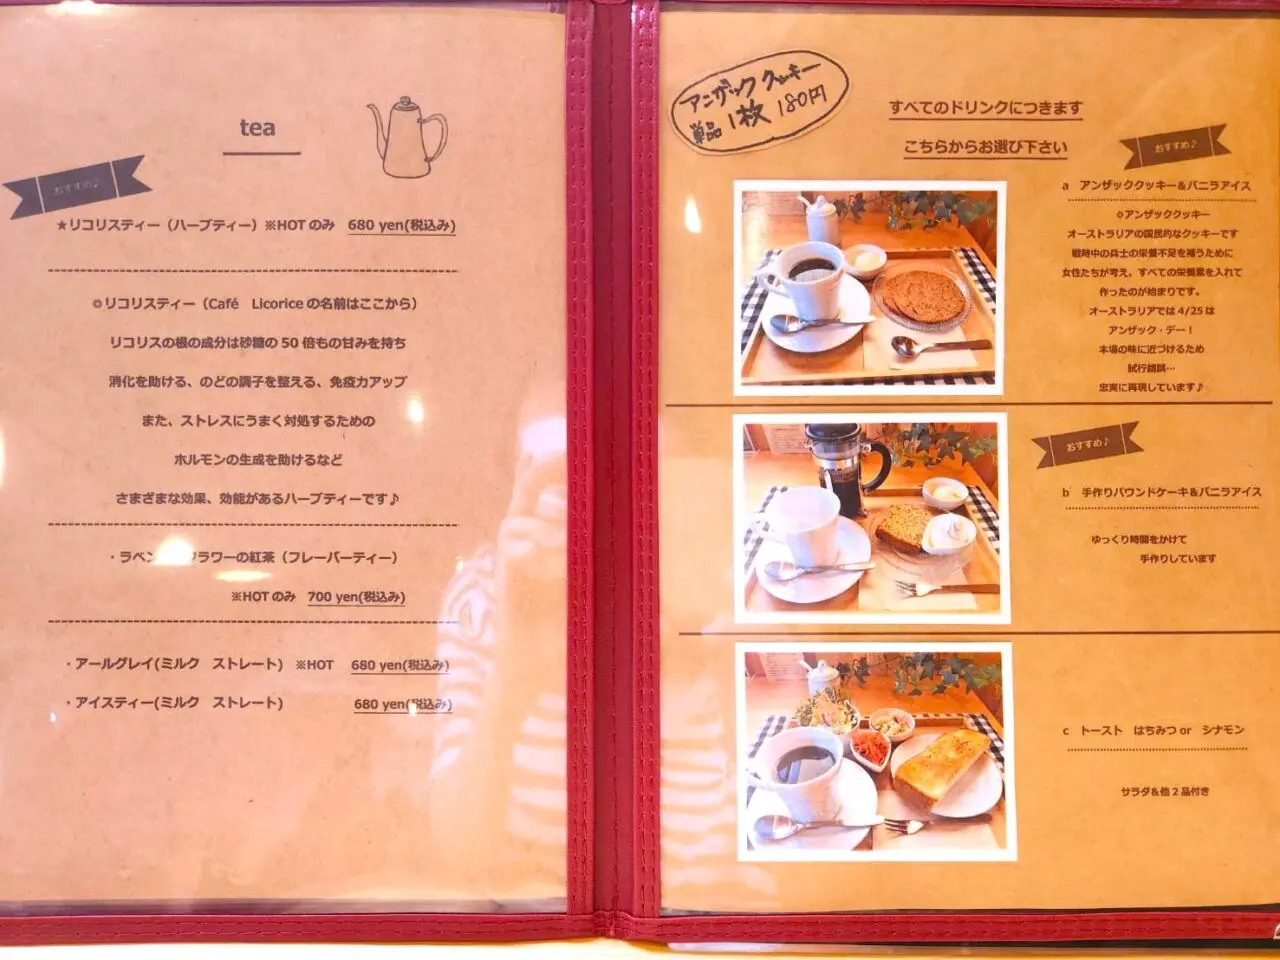 tea
おすすめ♪
★リコリスティー（ハーブティー）※HOT のみ 680 yen(税込み)
◎リコリスティー（Café Licorice の名前はここから）
リコリスの根の成分は砂糖の 50 倍もの甘みを持ち
消化を助ける、のどの調子を整える、免疫力アップ
また、ストレスにうまく対処するための
ホルモンの生成を助けるなど
さまざまな効果、効能があるハーブティーです♪
・ラベン フラワーの紅茶（フレーバーティー）
※HOT のみ 700 yen(税込み)
・アールグレイ(ミルク ストレート) ※HOT 680 yen(税込み)
・アイスティー(ミルク ストレート) 680 yen(税込み)
アンザッククッキー
単品 1枚 180円
すべてのドリンクにつきます
こちらからお選び下さい
おすすめ♪
a アンザッククッキー＆バニラアイス
◎アンザッククッキー
オーストラリアの国民的なクッキーです
戦時中の兵士の栄養不足を補うために
女性たちが考え、すべての栄養素を入れて
作ったのが始まりです。
オーストラリアでは 4/25 は
アンザック・デー！
本場の味に近づけるため
試行錯誤…
忠実に再現しています♪
おすすめ♪
b 手作りパウンドケーキ＆バニラアイス
ゆっくり時間をかけて
手作りしています
c トースト はちみつ or シナモン
サラダ＆他 2 品付き